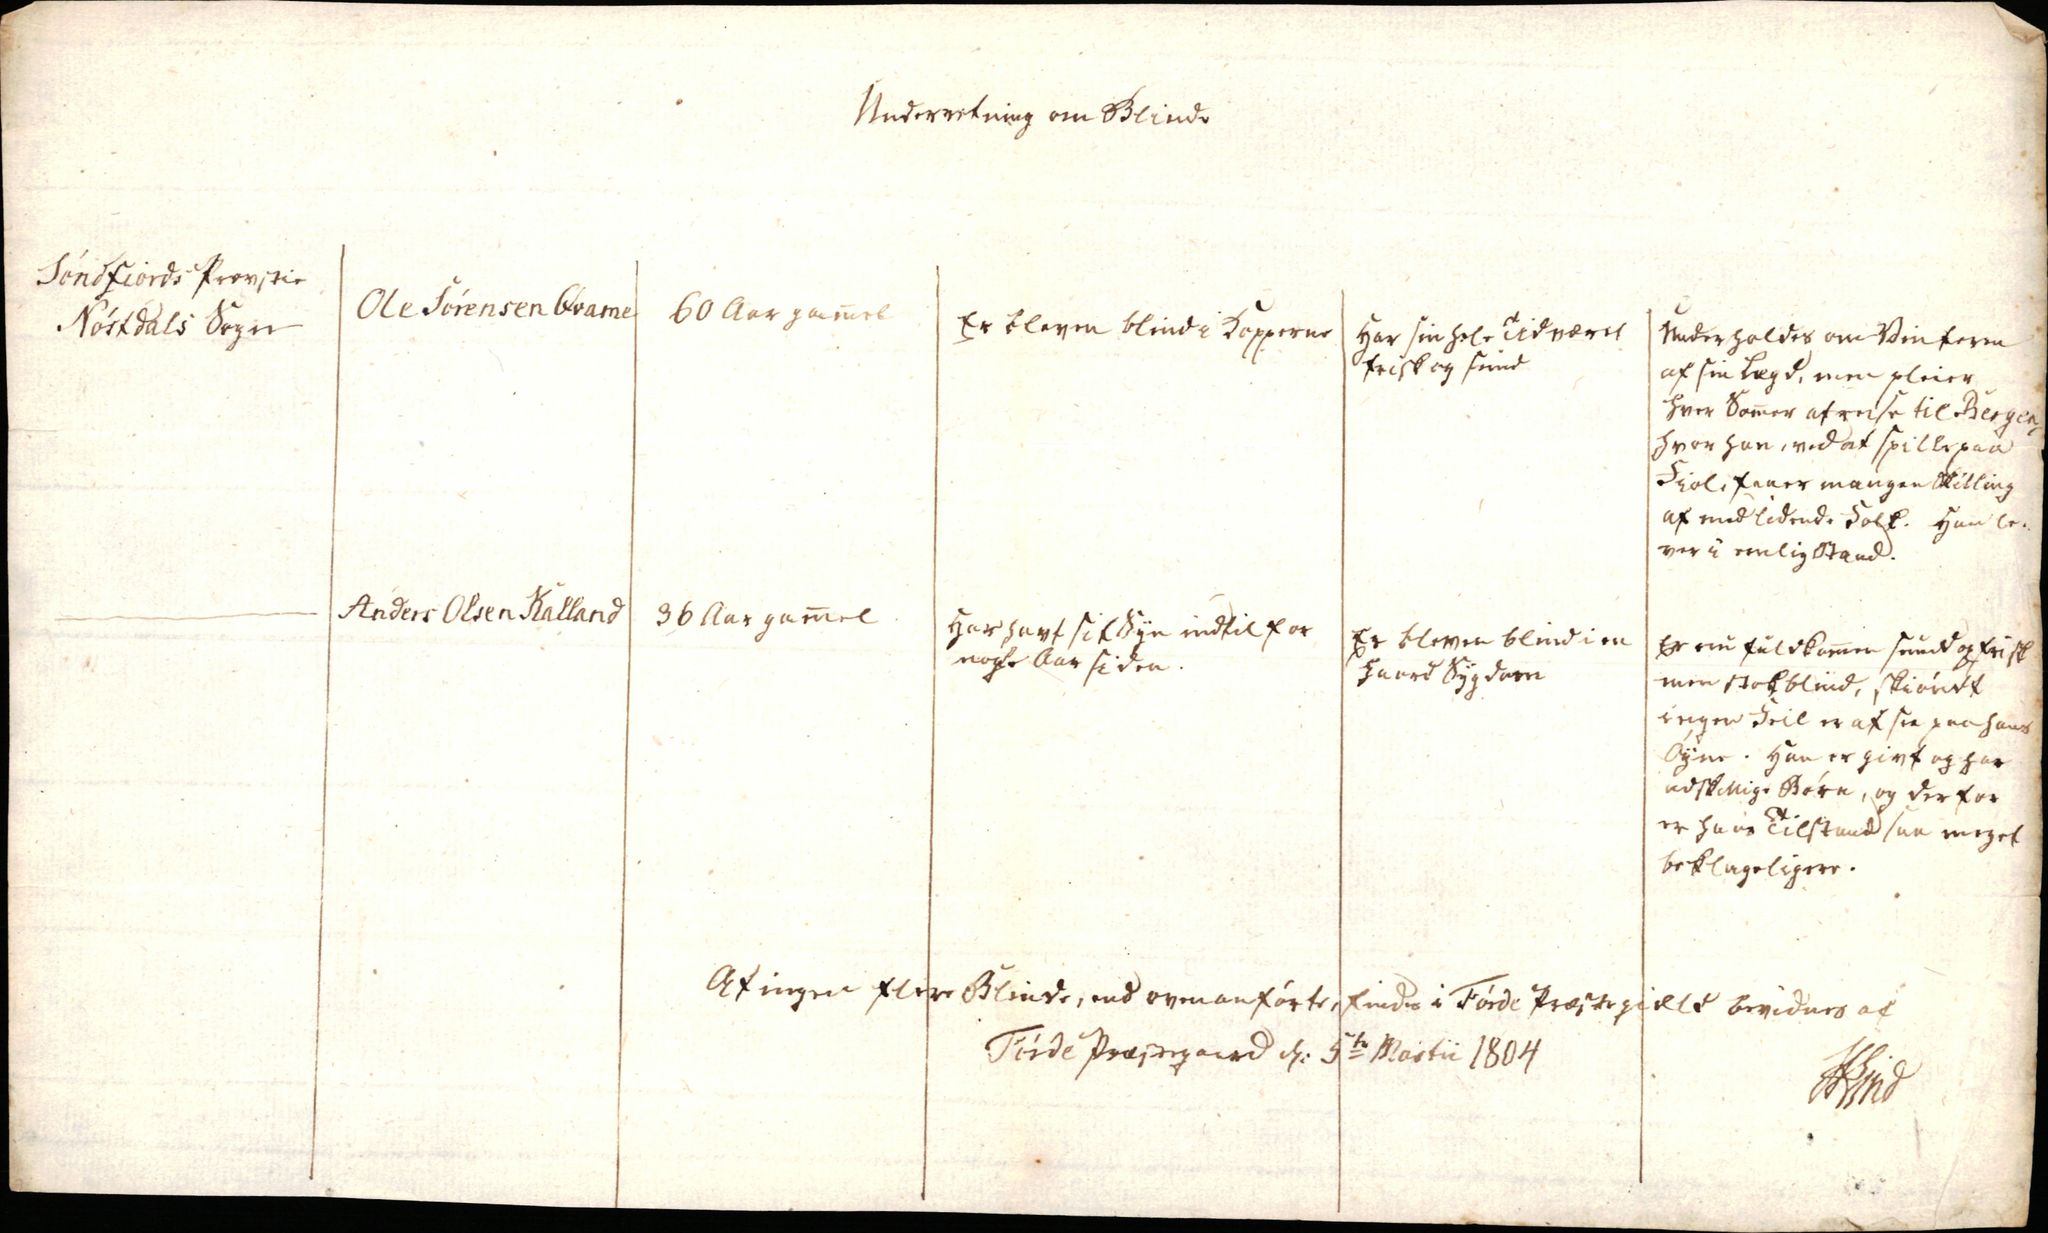 Underretning om Blinde
Söndfiords Provstie
Nöstdals Sogn
Ole Sörensen Qvame
60 Aar gam̄el
Er bleven blind i Kopperne
Har sin hele Tid været
frisk og sund
Underholdes om Vinteren
af sin Lægd, men pleier
hver Som̄er at reise til Bergen,
hvor han, ved at spille paa
Fiol, faaer mangen Skilling
af medlidende Folk. Han le-
ver i enlig Stand.
Anders Olsen Kalland
36 Aar gam̄el
Har havt sit Syn indtil for
nogle Aar siden.
Er bleven blind i en
haard Sygdom
Er nu fuldkom̄en sund og frisk
men stokblind, skiöndt
ingen Feil er at see paa hans
Öyne. Han er givt og har
adskillige Börn, og derfor
er hans Tilstand saa meget
beklageligere.
At ingen flere Blinde, end ovenanförte, findes i Förde Præstegield bevidnes af
Förde Præstegaard d. 5te Martii 1804